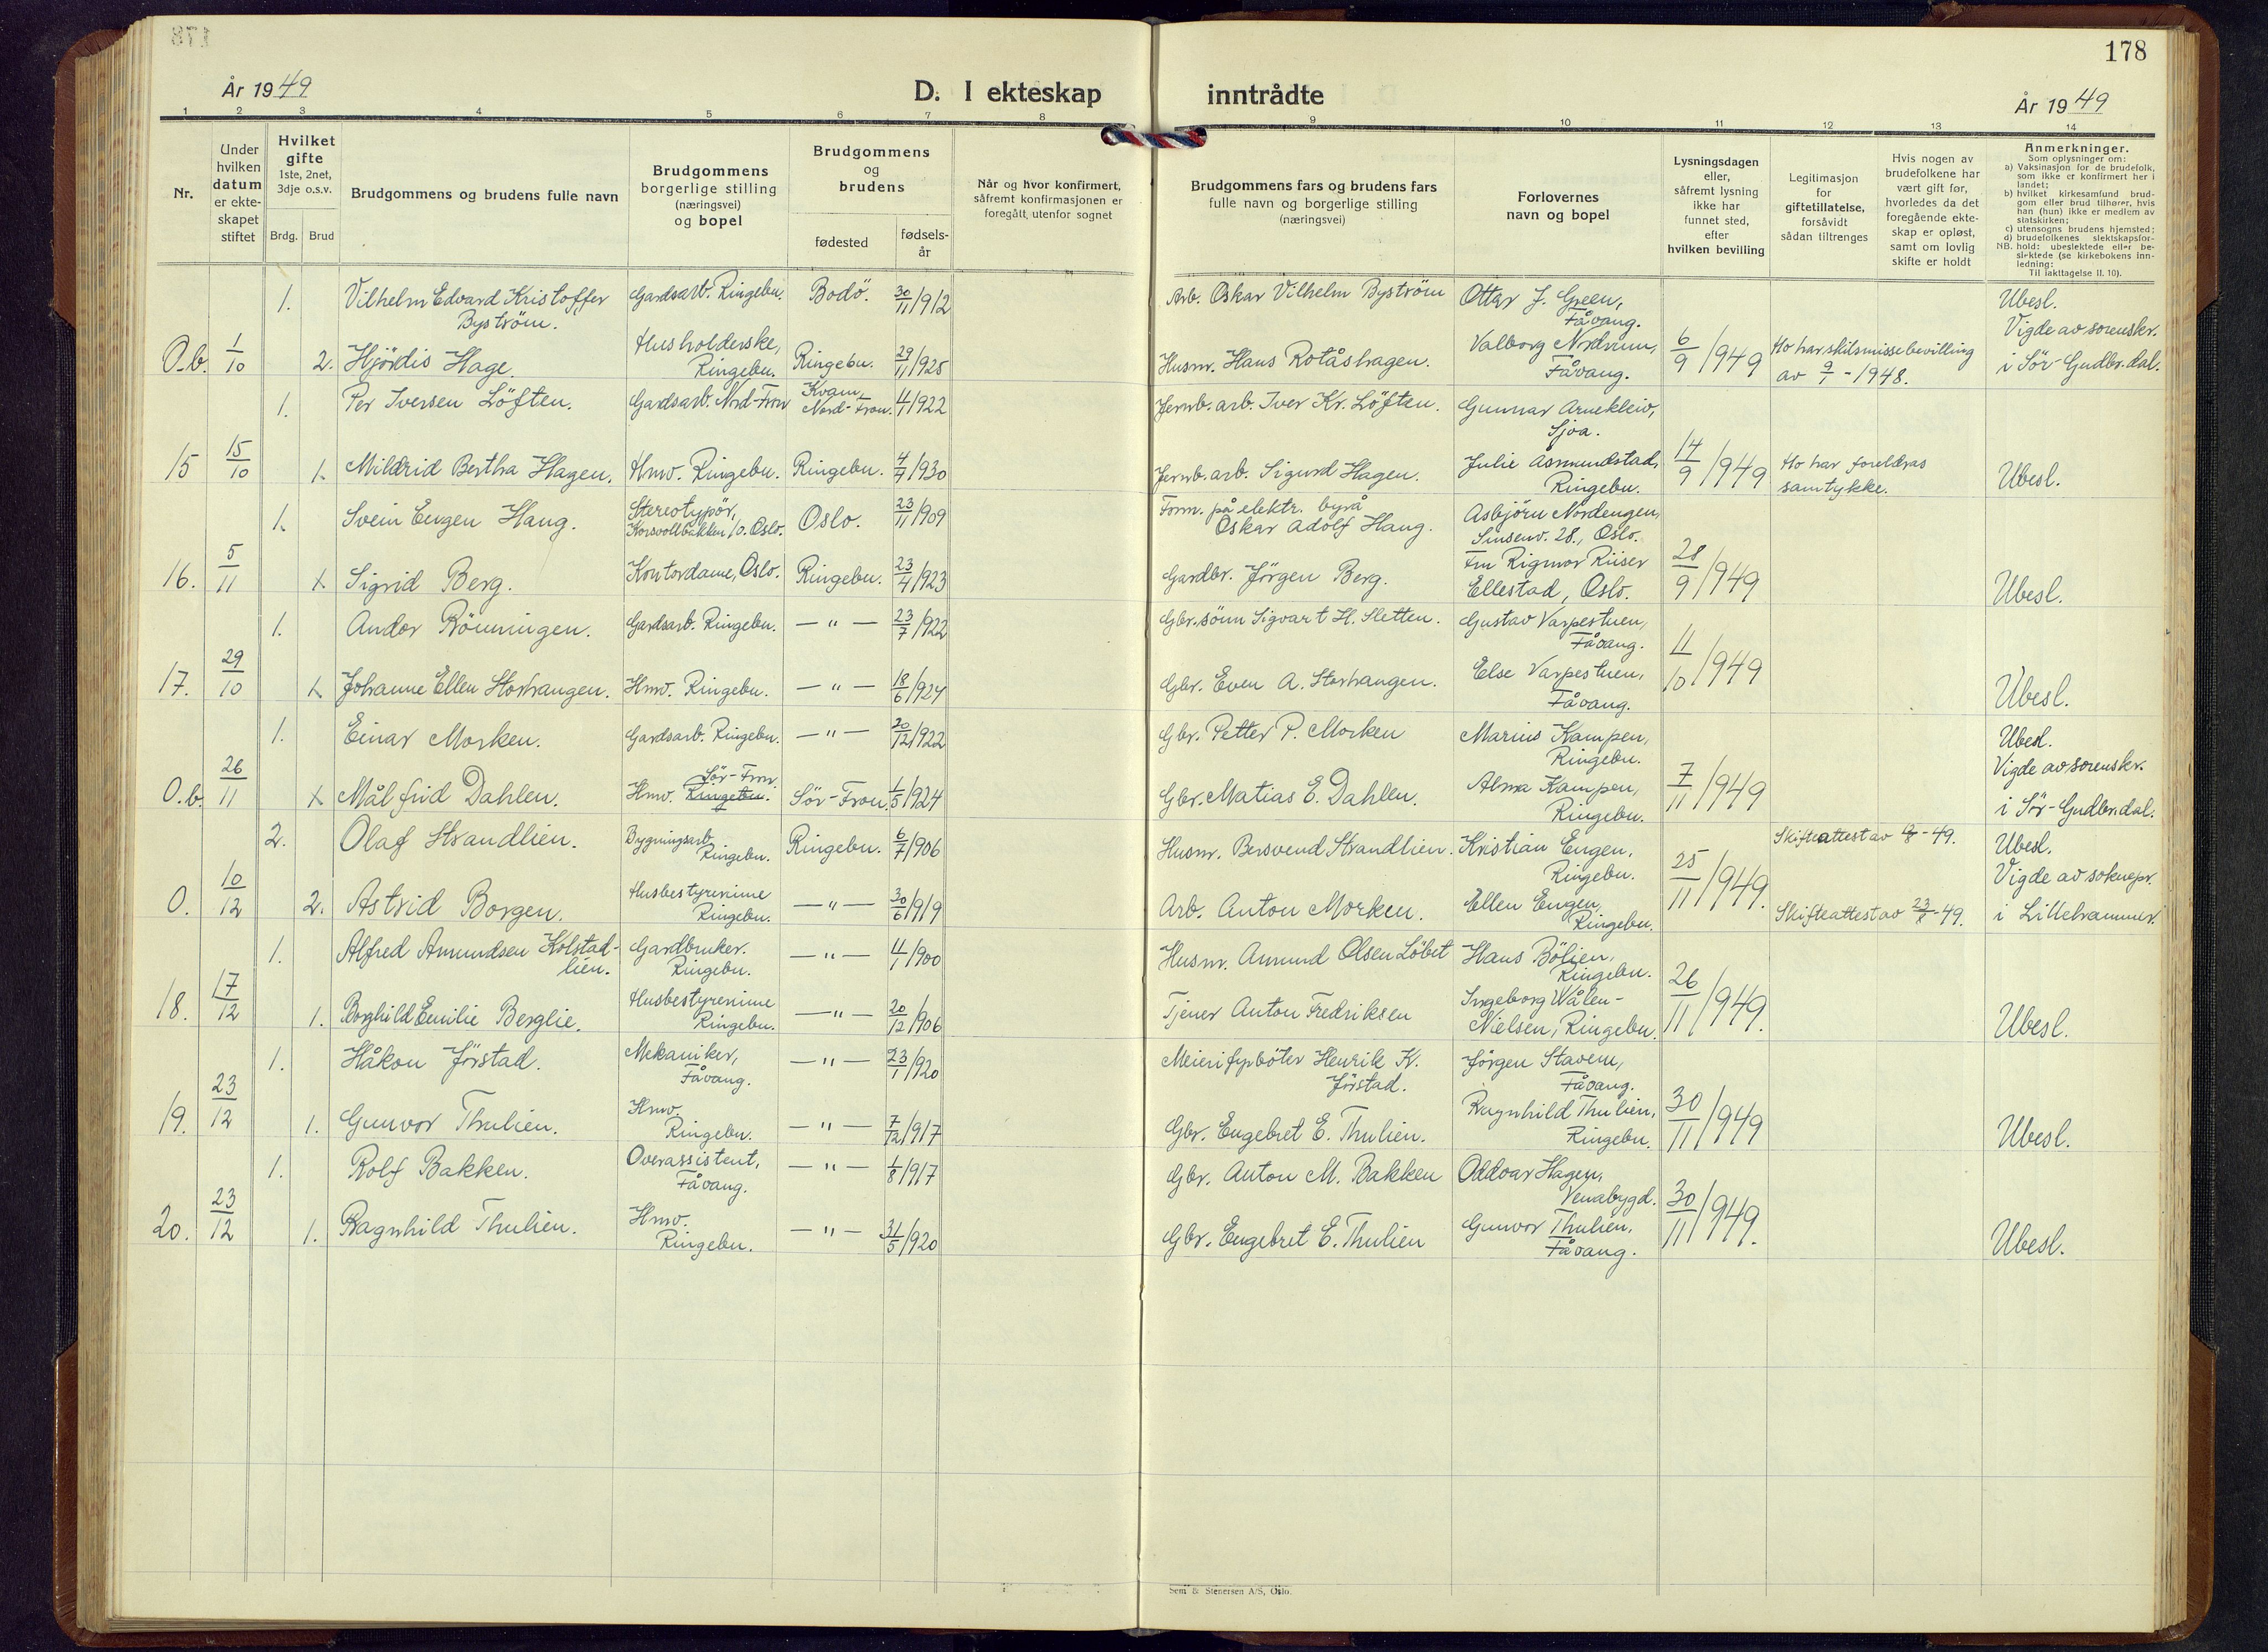 178
År 1949
D. I ekteskap inntrådte
År 1949
1 2 3 4 5 6 7 8 9 10 11 12 13 14
Nr.
Under
hvilken
datum
er ekte-
skapet
stiftet
Hvilket
gifte
1ste, 2net,
3dje o.s.v.
Brdg. Brud
Brudgommens og brudens fulle navn
Brudgommens
borgerlige stilling
(næringsvei)
og bopel
Brudgommens
og
brudens
fødested
fødsels-
år
Når og hvor konfirmert,
såfremt konfirmasjonen er
foregått utenfor sognet
Brudgommens fars og brudens fars
fulle navn og borgerlige stilling
(næringsvei)
Forlovernes
navn og bopel
Lysningsdagen
eller,
såfremt lysning
ikke har
funnet sted,
efter
hvilken bevilling
Legitimasjon
for
giftetillatelse,
forsåvidt
sådan tiltrenges
Hvis nogen av
brudefolkene har
vært gift før,
hvorledes da det
foregående ekte-
skap er opløst,
samt om lovlig
skifte er holdt
Anmerkninger.
Som oplysninger om:
a) Vaksinasjon for de brudefolk,
som ikke er konfirmert her i
landet;
b) hvilket kirkesamfund brud-
gom eller brud tilhører, hvis
han (hun) ikke er medlem av
statskirken;
c) utensogns brudens hjemsted;
d) brudefolkenes slektskapsfor-
NB. hold: ubeslektede eller be-
slektede (se kirkebokens inn-
ledning:
Til iakttagelse II. 10).
1. Vilhelm Edvard Kristoffer Byström. Gardsarb. Ringebu. Bodö. 30/11 1912 Arb. Oskar Vilhelm Byström Ottar J. Green, Fåvang. Ubesl.
O.b. 1/10 2. Hjördis Hage. Husholderske, Ringebu. Ringebu. 29/11 1925 Husm. Hans Rotåshagen. Valborg Nordrum, Fåvang. 6/9 1949 Ho har skilsmissebevilling av 9/1 - 1948. Vigde av sorenskr. i Sör-Gudbr.dal.
1. Per Iversen Löften. Gardsarb. Nord-Fron Kvam, Nord-Fron. 4/1 1922 Jernb.arb. Iver Kr. Löften. Gunnar Arnekleiv, Sjoa.
15 15/10 1. Mildrid Bertha Hagen. Hmv. Ringebu. Ringebu. 4/7 1930 Jernb.arb. Sigurd Hagen. Julie Åsmundstad, Ringebu. 14/9 1949 Ho har foreldras samtykke. Ubesl.
1. Svein Eugen Haug. Stereotypör, Korsvollbakken 10. Oslo. Oslo. 23/11 1909 Form. på elektr. byrå Oskar Adolf Haug. Asbjörn Nordengen, Sinsenv. 28., Oslo.
16. 5/11 1. Sigrid Berg. Kontordame, Oslo. Ringebu. 23/4 1923 Gardbr. Jörgen Berg. Fru Rigmor Riiser Ellestad, Oslo. 28/9 1949 Ubesl.
1. Andor Rönningen. Gardsarb. Ringebu. — " — 23/7 1922 Gbr.sönn Sigvart H. Sletten. Gustav Varpestuen, Fåvang.
17. 29/10 1. Johanne Ellen Storhaugen. Hmv. Ringebu. — " — 18/6 1924 Gbr. Even A. Storhaugen. Else Varpestuen, Fåvang. 11/10 1949 Ubesl.
1. Einar Morken. Gardsarb. Ringebu. — " — 20/12 1922 Gbr. Petter P. Morken Marius Kampen, Ringebu. Ubesl.
O.b. 26/11 1. Målfrid Dahlen. Hmv. Ringebu. Sör-Fron Sör-Fron. 1/5 1924 Gbr. Matias E. Dahlen. Alma Kampen, Ringebu. 7/11 1949 Vigde av sorenskr. i Sör-Gudbr.dal.
2. Olaf Strandlien. Bygningsarb. Ringebu. Ringebu. 6/7 1906 Husm. Bersvend Strandlien. Kristian Eugen, Ringebu. Skifteattest av - 49. Ubesl.
O. 10/12 2. Astrid Borgen. Husbestyrerinne Ringebu. — " — 30/6 1919 Arb. Anton Morken. Ellen Eugen, Ringebu. 25/11 1949. Skifteattest av - 49. Vigde av soknepr. i Lillehammer.
1. Alfred Amundsen Kolstad-lien. Gardbruker. Ringebu. — " — 4/1 1900 Husm. Amund Olsen Löbet Hans Bölien, Ringebu.
18. 17/12 1. Borghild Emilie Berglie. Husbestyrerinne Ringebu. — " — 20/12 1906 Tjener Anton Fredriksen Ingeborg Wålen-Nielsen, Ringebu. 26/11 1949. Ubesl.
1. Håkon Jörstad. Mekaniker, Fåvang. — " — 23/1 1920 Meierifyrböter Henrik K. Jörstad. Jörgen Stavem, Fåvang.
19. 23/12 1. Gunvor Thulien. Hmv. Ringebu. — " — 7/12 1917 Gbr. Engebret E. Thulien. Ragnhild Thulien, Ringebu. 30/11 1949 Ubesl.
1. Rolf Bakken. Overassistent, Fåvang. — " — 1/8 1917 Gbr. Anton M. Bakken Oddvar Hagen, Venabygd.
20. 23/12 1. Ragnhild Thulien. Hmv. Ringebu. — " — 31/5 1920 Gbr. Engebret E. Thulien Gunvor Thulien, Fåvang. 30/11 1949. Ubesl.
Sem & Stenersen A/S, Oslo.